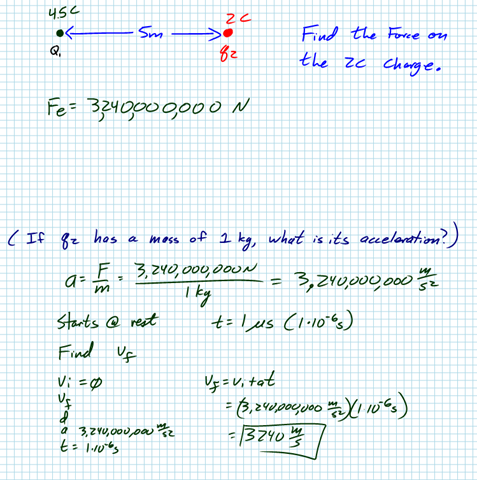 4.5C 2C
5m
Q₁ q₂
Find the Force on
the 2C charge.
Fe = 3,240,000,000 N
(If q₂ has a mass of 1 kg, what is its acceleration?)
a = F/m = 3,240,000,000 N / 1 kg = 3,240,000,000 m/s²
Starts @ rest t = 1 μs (1·10⁻⁶s)
Find v_f
vi = 0 v_f = vi + at
v_f
= (3,240,000,000 m/s²)(1·10⁻⁶s)
d
a 3,240,000,000 m/s²
= 3240 m/s
t = 1·10⁻⁶s